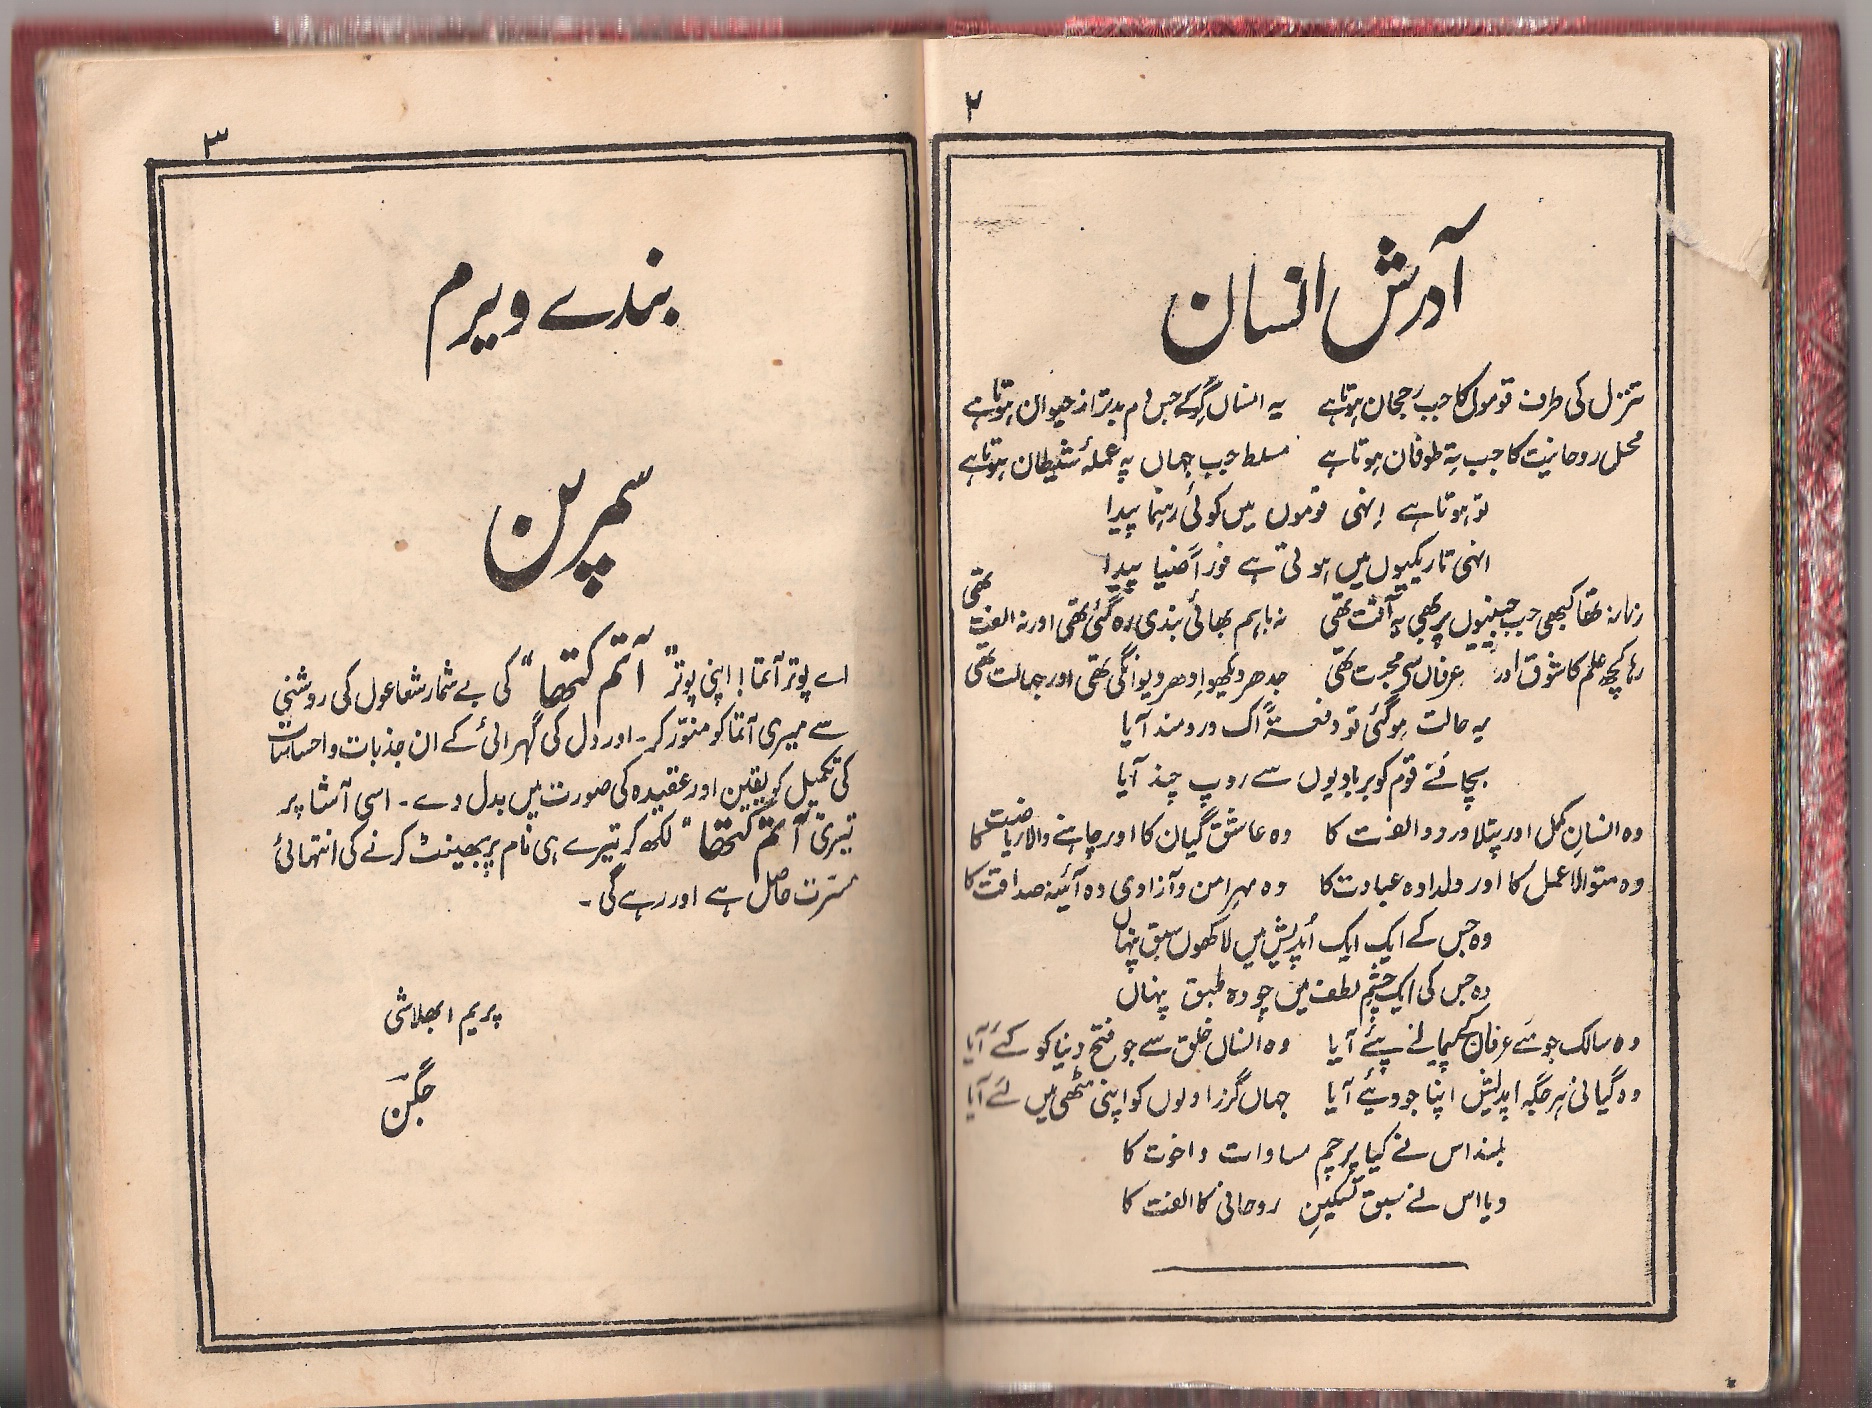 ۲
آدرش انسان
تنزل کی طرف قوموں کا جب رجحان ہوتا ہے یہ انساں گر کے جس دم بدتر از حیوان ہوتا ہے
محل روحانیت کا جب تہ طوفان ہوتا ہے مسلط جب جہاں پہ عملۂ شیطان ہوتا ہے
تو ہوتا ہے انہی قوموں میں کوئی رہنما پیدا
انہی تاریکیوں میں ہوتی ہے فوراً ضیا پیدا
زمانہ تھا کبھی جب جینیوں پر بھی یہ آفت تھی نہ باہم بھائی بندی رہ گئی تھی اور نہ الفت تھی
رہا کچھ علم کا شوق اور عرفاں سی محبت تھی جدھر دیکھو ادھر دیوانگی تھی اور جہالت تھی
یہ حالت ہوگئی تو دفعتہً اک دردمند آیا
بچانے قوم کو بربادیوں سے روپ چند آیا
وہ انسانِ مکمل اور پتلا درد و الفت کا وہ عاشق گیان کا اور چاہنے والا ریاضت کا
وہ متوالا عمل کا اور دلدادہ عبادت کا وہ مہر امن و آزادی وہ آئینہ صداقت کا
وہ جس کے ایک ایک اُپدیش میں لاکھوں سبق پنہاں
وہ جس کی ایک چشمِ لطف میں چودہ طبق پنہاں
وہ سالک جو مے عرفاں کے پیمانے پئے آیا وہ انساں خلق سے جو فتح دنیا کو کئے آیا
وہ گیانی ہر جگہ اپدیش اپنا جو دیئے آیا جہاں گرز اولوں کو اپنی مٹھی میں لئے آیا
بلند اس نے کیا پرچم مساوات و اخوت کا
دیا اس نے سبق تسکینِ روحانی کا الفت کا
۳
بندے ویرم
سمرپن
اے پوتر آتما! اپنی پوتر "آتم کتھا" کی بے شمار شعاعوں کی روشنی
سے میری آتما کو منوّر کر۔ اور دل کی گہرائی کے ان جذبات و احساسات
کی تکمیل کو یقین اور عقیدہ کی صورت میں بدل دے۔ اسی آشا پر
تیری "آتم کتھا" لکھ کر تیرے ہی نام پر بھینٹ کرنے کی انتہائی
مسرّت حاصل ہے اور رہے گی۔
پریم ابھلاشی
جگن